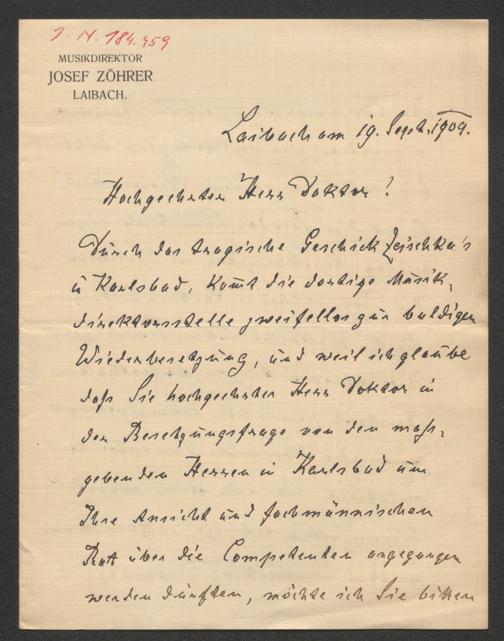 I. N. 184.459
MUSIKDIREKTOR
JOSEF ZÖHRER
LAIBACH.
Laibach am 19. Sept. 1909.
Hochgeehrter Herr Doktor!
Durch das tragische Geschick Zeischka's
in Karlsbad, kom̅t die dortige Musik-
direktorstelle zweifellos zur baldigen
Wiederbesetzung, und weil ich glaube
daß Sie hochgeehrter Herr Doktor in
der Besetzungsfrage von den maß-
gebenden Herren in Karlsbad um
Ihre Ansicht und fachmännischen
Rath über die Competenten angegangen
werden dürften, möchte ich Sie bitten